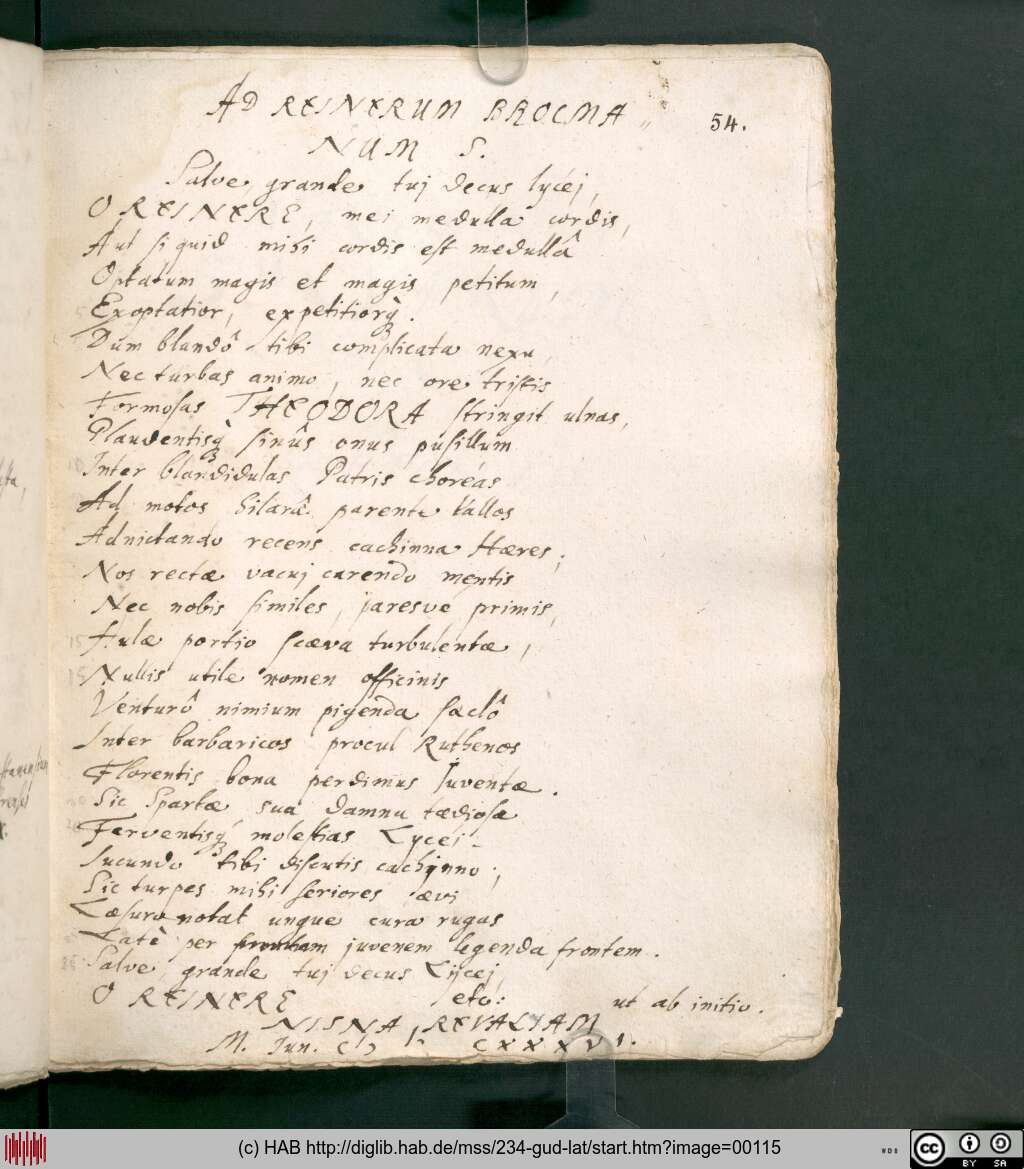 AD REINERUM BROCMA„
54.
NUM S.
Salve grande tuj decus lycej,
O REINERE, mei medulla cordis,
Aut si quid mihi cordis est medullâ
Optatum magis et magis petitum,
Exoptatior, expetitiorq́ꝫ.
Dum blandô tibi complicata nexu
Nec turbas animo, nec ore tristis
Formosas THEODORA stringit ulnas,
Plaudentisq́ꝫ sinûs onus pusillum
Inter blandidulas Patris choréas
Ad motos hilarâ parente tallos
Adnictando recens cachinna Hæres;
Nos rectæ vacuj carendo mentis
Nec nobis similes, paresve primis,
Aulæ portio scæva turbulentæ,
Nullis utile nomen officinis
Venturô nimium pigenda sæclô
Inter barbaricos procul Ruthenos
Florentis bona perdimus Iuventæ.
Sic Spartæ sua damna tædiosæ
Ferventisq́ꝫ molestias Lycéi
Iucundo tibi discutis cachinno;
Sic turpes mihi seriores ævi
Læsura notat ungue cura rugas
Latè per juvenem legenda frontem.
Salve grande tuj decus Lijcej,
O REINERE etc: ut ab initio.
NISNA, REVALIAM
M. Jun. CIↃ IↃ CXXXVI.
(c) HAB http://diglib.hab.de/mss/234-gud-lat/start.htm?image=00115
cc BY SA